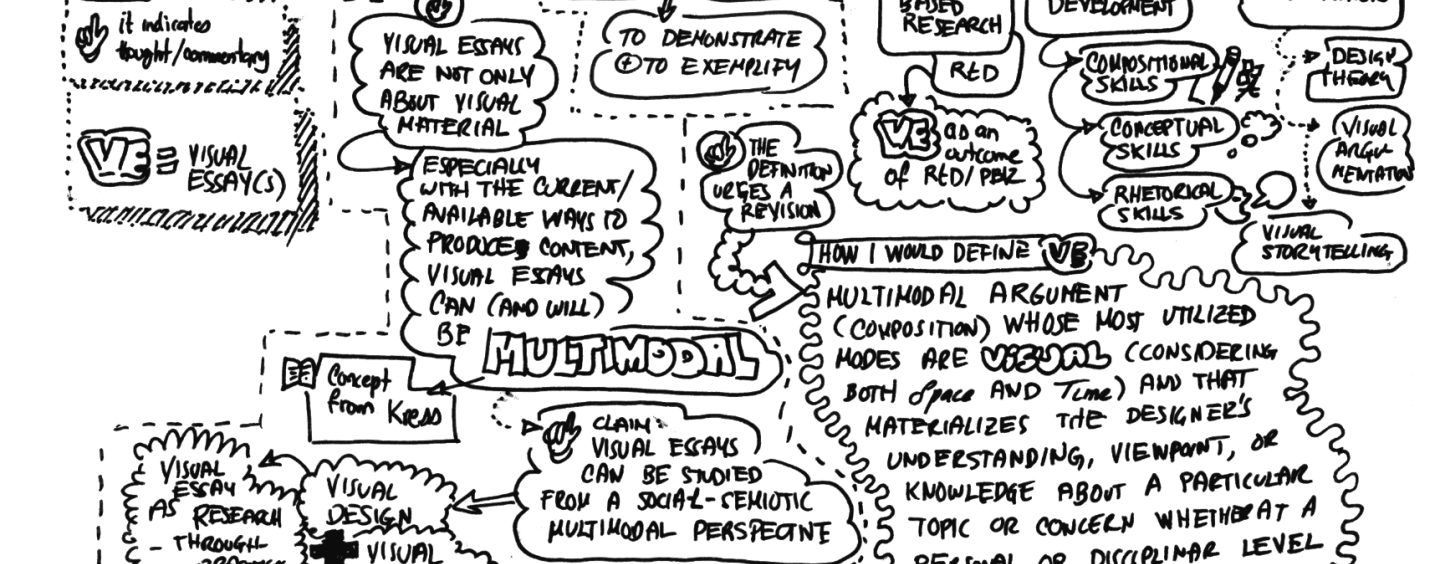 it indicates
thought/commentary
VE = VISUAL
ESSAY(S)
VISUAL ESSAYS
ARE NOT ONLY
ABOUT VISUAL
MATERIAL
ESPECIALLY
WITH THE CURRENT/
AVAILABLE WAYS TO
PRODUCE CONTENT,
VISUAL ESSAYS
CAN (AND WILL)
BE MULTIMODAL
Concept
from Kress
CLAIM:
VISUAL ESSAYS
CAN BE STUDIED
FROM A SOCIAL-SEMIOTIC
MULTIMODAL PERSPECTIVE
VISUAL
DESIGN
VISUAL
VISUAL
ESSAY
AS RESEARCH
- THROUGH
TO DEMONSTRATE
+ TO EXEMPLIFY
BASED
RESEARCH
RtD
VE as an
outcome
of RtD/PBR
THE
DEFINITION
URGES A
REVISION
DEVELOPMENT
COMPOSITIONAL
SKILLS
CONCEPTUAL
SKILLS
RHETORICAL
SKILLS
DESIGN
THEORY
VISUAL
ARGU
MENTATION
VISUAL
STORYTELLING
HOW I WOULD DEFINE VE
MULTIMODAL ARGUMENT
(COMPOSITION) WHOSE MOST UTILIZED
MODES ARE VISUAL (CONSIDERING
BOTH Space AND Time) AND THAT
MATERIALIZES THE DESIGNER'S
UNDERSTANDING, VIEWPOINT, OR
KNOWLEDGE ABOUT A PARTICULAR
TOPIC OR CONCERN WHETHER AT A
PERSONAL OR DISCIPLINAR LEVEL